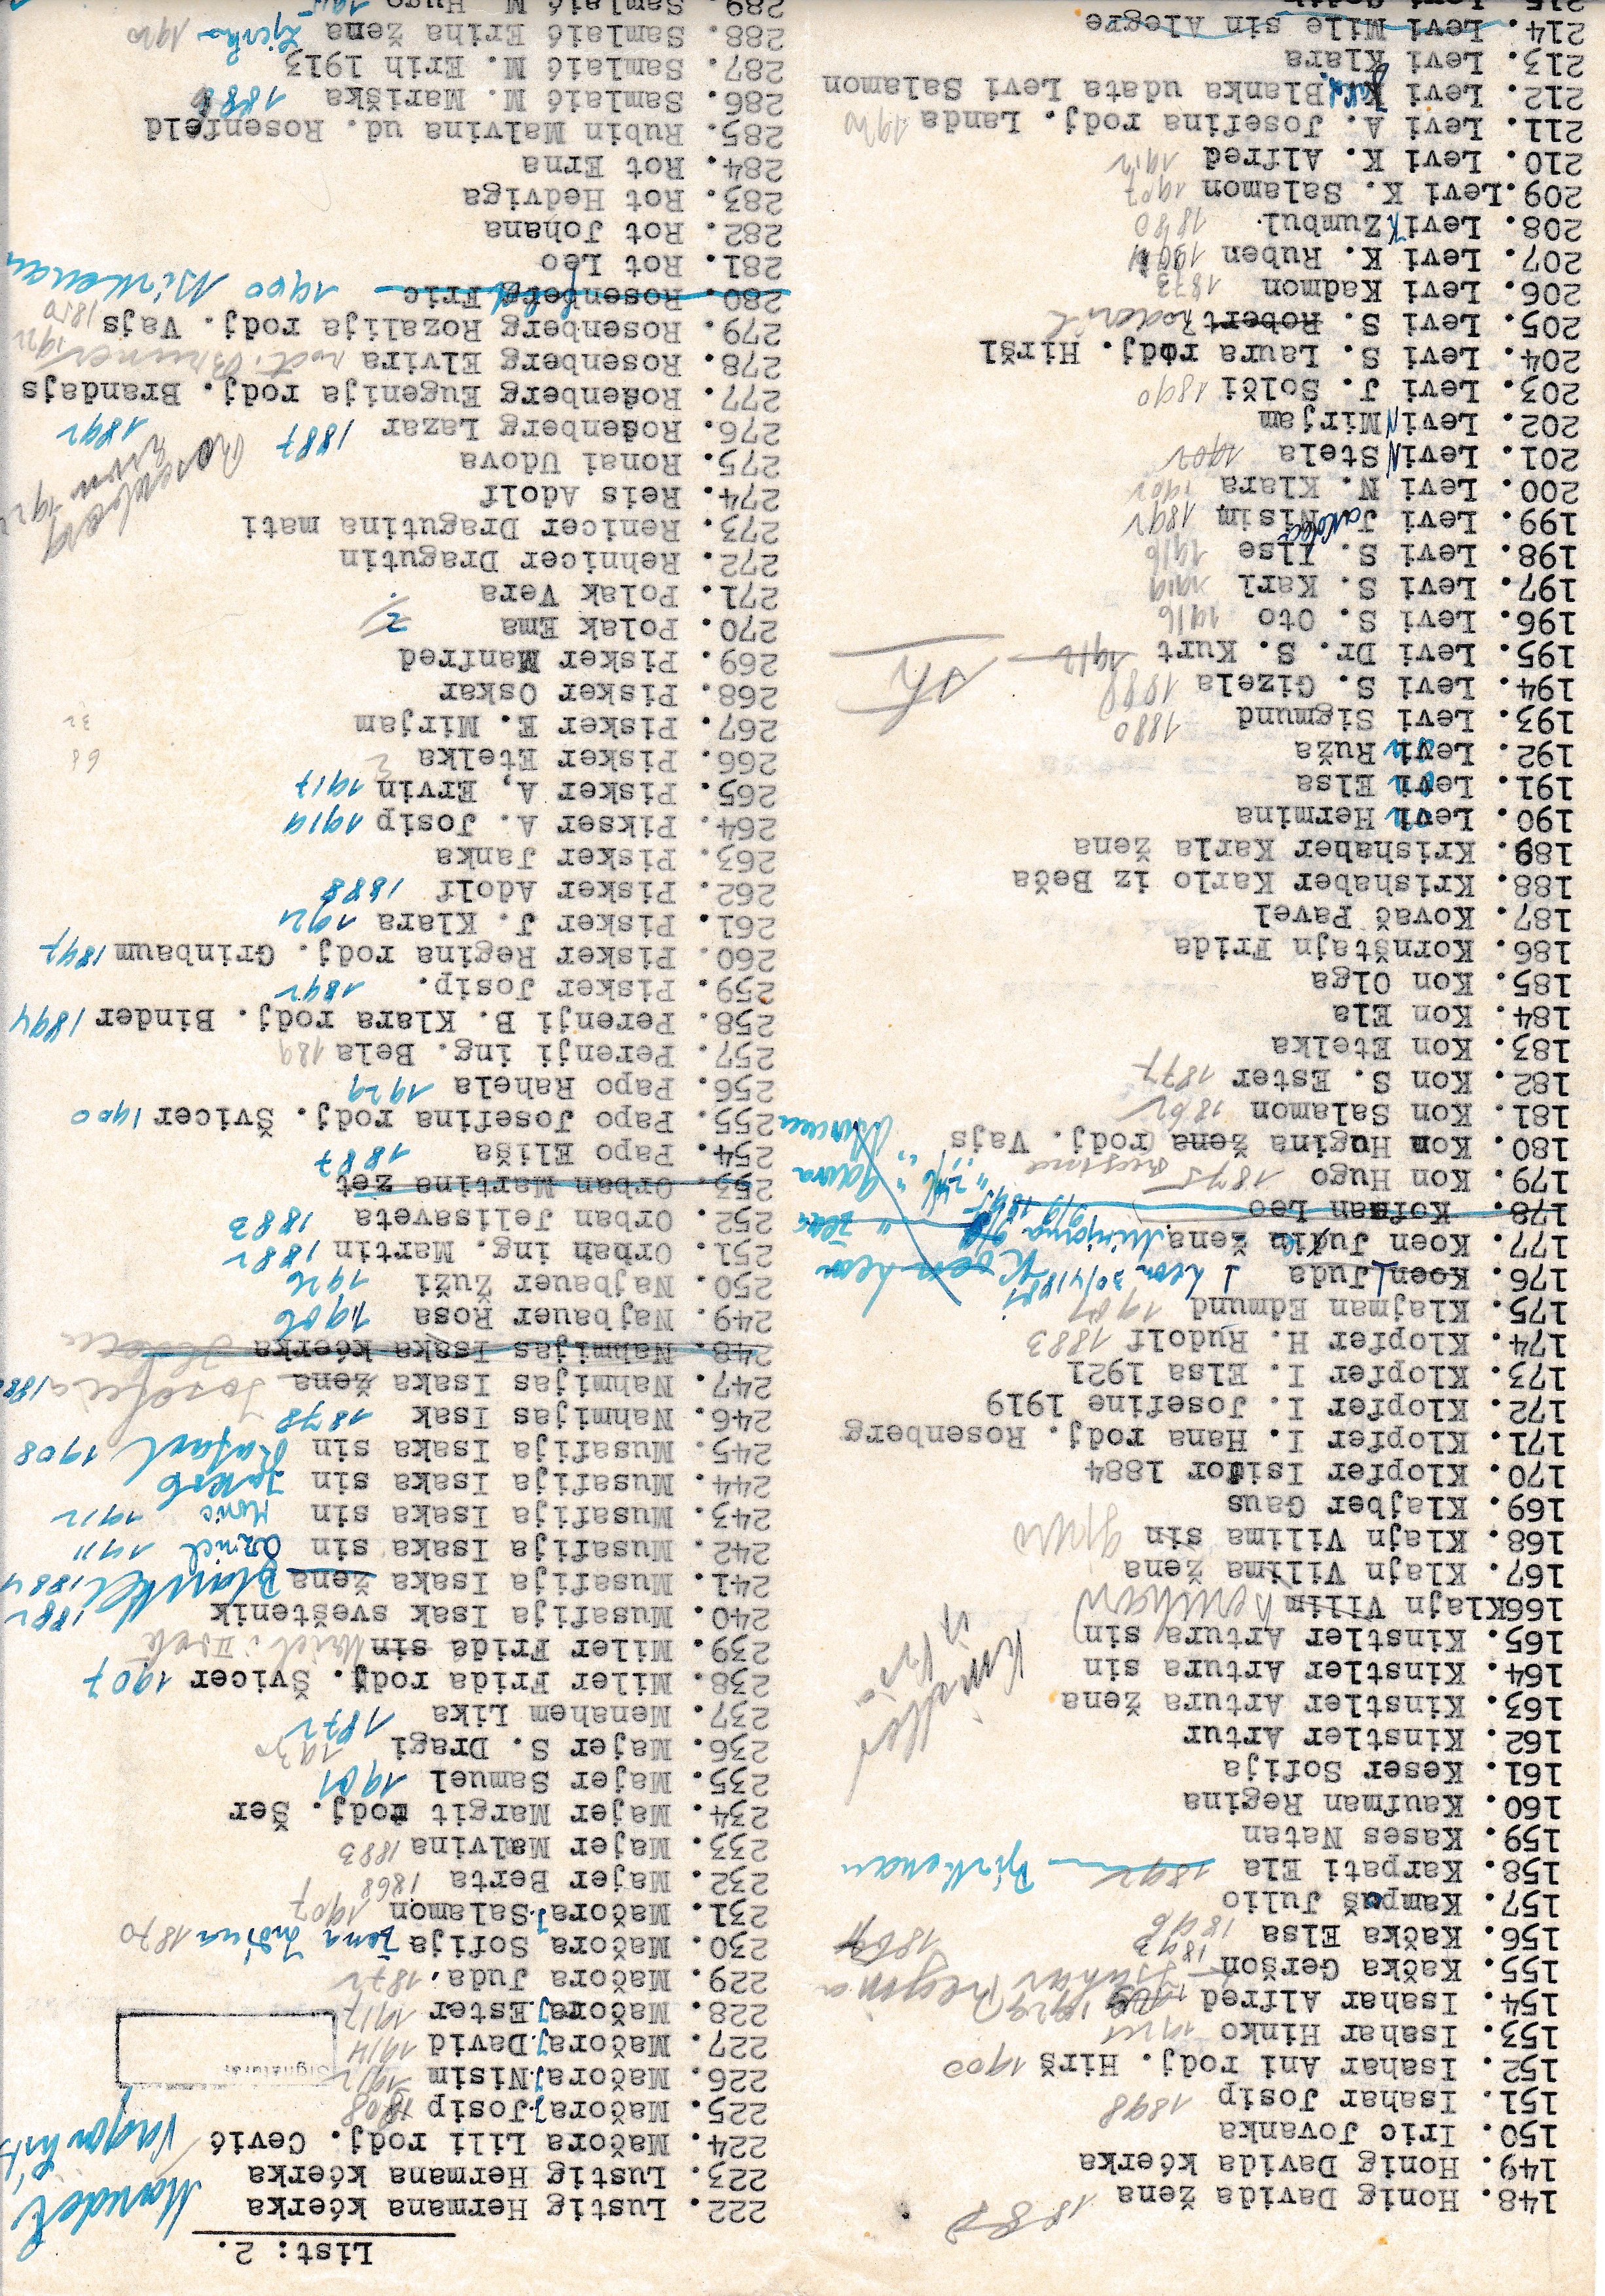 List: 2.
148. Honig Davida žena 188
149. Honig Davida kćerka
150. Iric Jovanka
151. Isahar Josip 1898
152. Isahar Ani rodj. Hirš 1900
153. Isahar Hinko
154. Isahar Alfred 1929
155. Kačka Geršon 1893
Isahar Regina
156. Kačka Elsa 1896
157. Kampoš Julio
158. Karpati Ela 1892 Birkenau
159. Kases Natan
160. Kaufman Regina
161. Keser Sofija
162. Kinstler Artur
163. Kinstler Artura žena
164. Kinstler Artura sin
165. Kinstler Artura sin
166 Klajn Vilim
167. Klajn Vilima žena
168. Klajn Vilima sin
169. Klajber Gaus
170. Klopfer Isidor 1884
171. Klopfer I. Hana rodj. Rosenberg
172. Klopfer I. Josefine 1919
173. Klopfer I. Elsa 1921
174. Klopfer H. Rudolf 1883
175. Klajman Edmund 1907
176. Koen Juda
177. Koen Jude žena
178. Kofman Leo
179. Kon Hugo 1875
180. Kon Hugina žena rodj. Vajs
181. Kon Salamon 1862
182. Kon S. Ester 1877
183. Kon Etelka
184. Kon Ela
185. Kon Olga
186. Kornštajn Frida
187. Kovač Pavel
188. Krishaber Karlo iz Beča
189. Krishaber Karla žena
190. Levi Hermina
191. Levi Elsa
192. Levi Ruža
193. Levi Sigmund 1880
194. Levi S. Gizela 1888
195. Levi Dr. S. Kurt 1912
196. Levi S. Oto 1916
197. Levi S. Karl 1919
198. Levi S. Ilse 1916
199. Levi J. Nisim 1892
200. Levi N. Klara 1902
201. Levi N Stela 1902
202. Levi N Mirjam
203. Levi J. Solči 1890
204. Levi S. Laura rodj. Hiršl
205. Levi S. Robert
206. Levi Kadmon 1873
207. Levi K. Ruben 1904
208. Levi K Zumbul. 1880
209. Levi K. Salamon 1907
210. Levi K. Alfred 1912
211. Levi A. Josefina rodj. Landa 1920
212. Levi Blanka udata Levi Salamon
213. Levi Klara
214. Levi Mile sin Alegre
222. Lustig Hermana kćerka
223. Lustig Hermana kćerka
224. Mačora Lili rodj. Cević
225. Mačora J. Josip 1808
226. Mačora J. Nisim 1912
227. Mačora J. David 1914
228. Mačora J. Ester 1917
229. Mačora Juda. 1872
230. Mačora Sofija žena Judina 1870
231. Mačora J. Salamon 1907
232. Majer Berta 1868
233. Majer Malvina 1883
234. Majer Margit rodj. Šer
235. Majer Samuel 1901
236. Majer S. Dragi 1930
237. Menahem Lika 1872
238. Miler Frida rodj. Švicer 1907
239. Miler Frida sin
240. Musafija Isak sveštenik 1882
241. Musafija Isaka žena 1884
242. Musafija Isaka sin 1911
243. Musafija Isaka sin Moric 1912
244. Musafija Isaka sin Jakob
245. Musafija Isaka sin Rafael 1908
246. Nahmijas Isak 1878
247. Nahmijas Isaka žena
248. Nahmijas Isaka kćerka
249. Najbauer Rosa 1906
250. Najbauer Žuži 1926
251. Orban ing. Martin 1882
252. Orban Jelisaveta 1883
253. Orban Martina zet
254. Papo Eliša 1887
255. Papo Josefina rodj. Švicer 1900
256. Papo Rahela 1929
257. Perenji ing. Bela 189
258. Perenji B. Klara rodj. Binder 1894
259. Pisker Josip. 1892
260. Pisker Regina rodj. Grinbaum 1897
261. Pisker J. Klara 1921
262. Pisker Adolf 1888
263. Pisker Janka
264. Pikser A. Josip 1919
265. Pisker A, Ervin 1917
266. Pisker Etelka
267. Pisker E. Mirjam
268. Pisker Oskar
269. Pisker Manfred
270. Polak Ema
271. Polak Vera
272. Rehnicer Dragutin
273. Renicer Dragutina mati
274. Reis Adolf
275. Ronai Udova
276. Rosenberg Lazar 1887
277. Rosenberg Eugenija rodj. Brandajs
278. Rosenberg Elvira
279. Rosenberg Rozalija rodj. Vajs 1850
280. Rosenberg Fric 1900 Birkenau
281. Rot Leo
282. Rot Johana
283. Rot Hedviga
284. Rot Erna
285. Rubin Malvina ud. Rosenfeld
286. Samlaić M. Mariška 1886
287. Samlaić M. Erih 1913
288. Samlaić Eriha žena 1920
289. Samlaić M. Hugo 1915